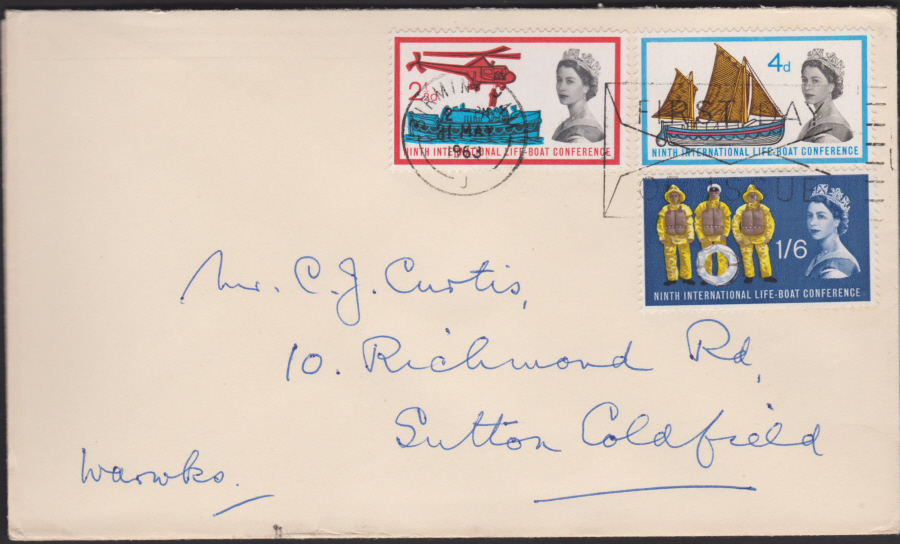 2½d
NINTH INTERNATIONAL LIFE-BOAT CONFERENCE
4d
NINTH INTERNATIONAL LIFE-BOAT CONFERENCE
MAY
1963
J
FIRST DAY
OF ISSUE
1/6
NINTH INTERNATIONAL LIFE-BOAT CONFERENCE
Mr. C. J. Curtis,
10. Richmond Rd,
Sutton Coldfield
Warwks.